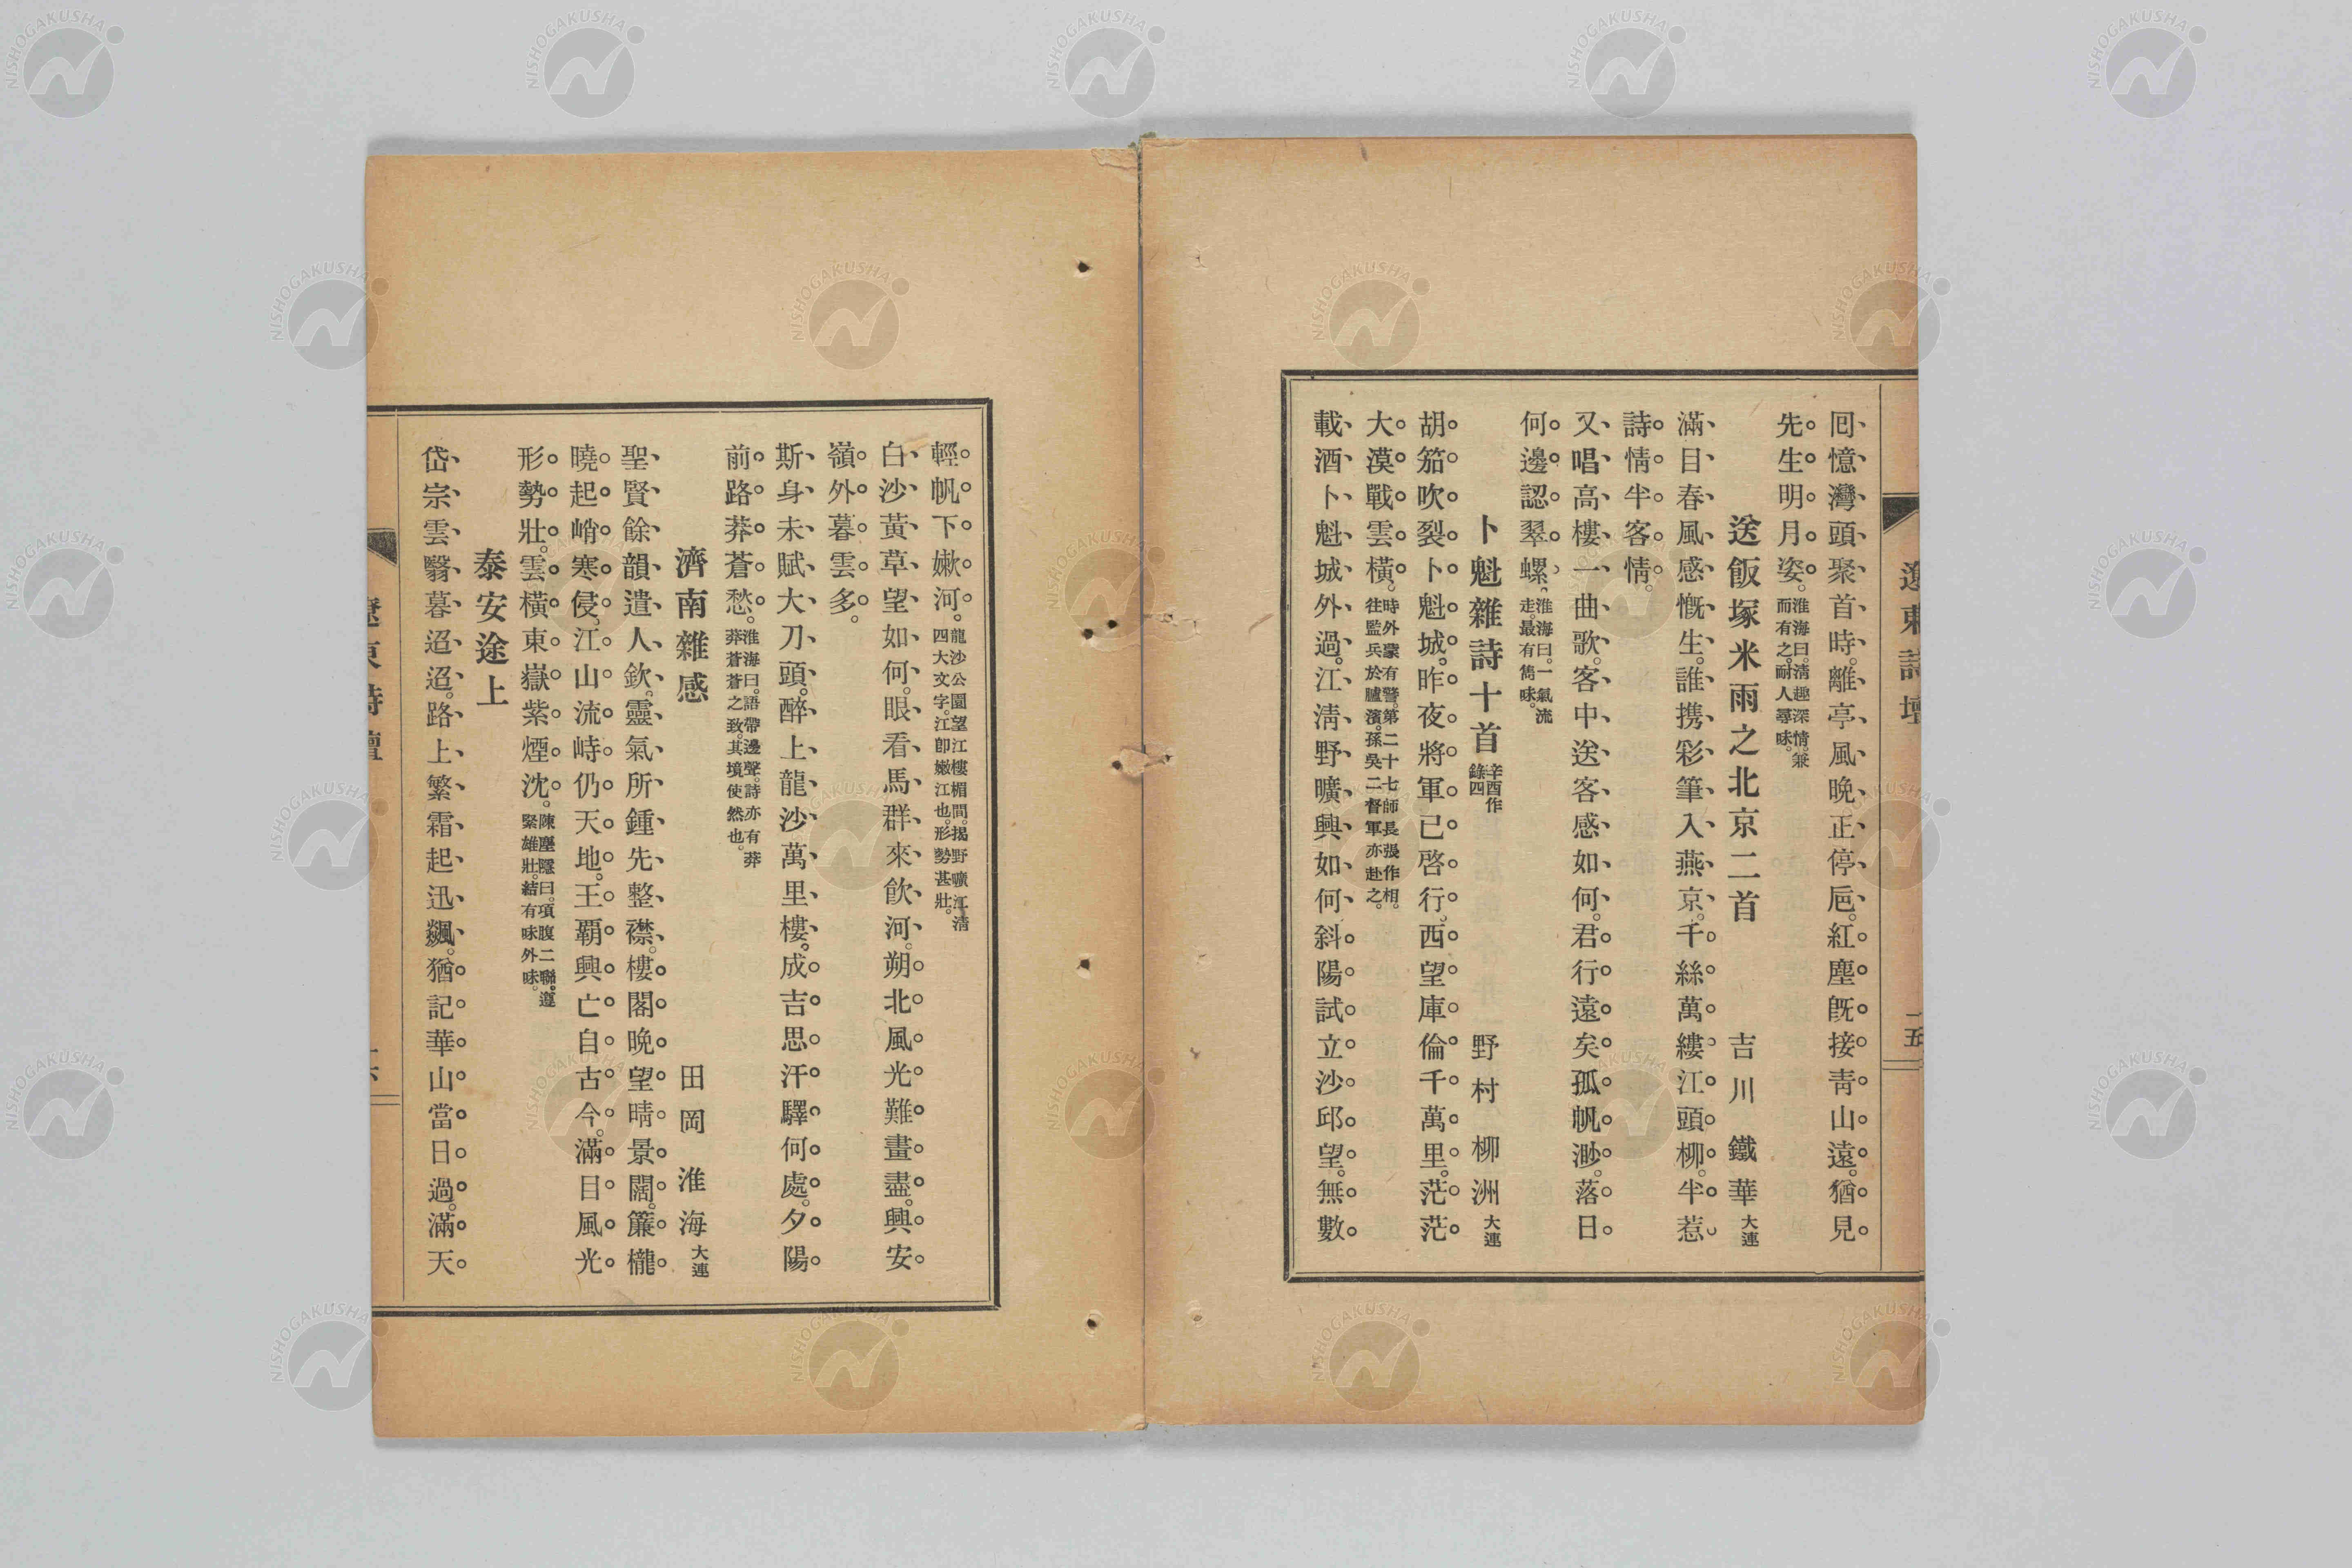 遼東詩壇
一五
囘憶灣頭聚首時。離亭風晩正停巵。紅塵旣接靑山遠。猶見
先生明月姿。淮海曰。淸趣深情。兼而有之。耐人尋味。
送飯塚米雨之北京二首 吉川鐵華大連
滿目春風感慨生。誰携彩筆入燕京。千絲萬縷江頭柳。半惹
詩情半客情。
又唱高樓一曲歌。客中送客感如何。君行遠矣孤帆渺。落日
何邊認翠螺。淮海曰。一氣流走。最有雋味。
卜魁雜詩十首辛酉作錄四 野村柳洲大連
胡笳吹裂卜魁城。昨夜將軍已啓行。西望庫倫千萬里。茫茫
大漠戰雲橫。時外蒙有警。第二十七師長張作相。往監兵於臚濱。孫吳二督軍亦赴之。
載酒卜魁城外過。江淸野曠興如何。斜陽試立沙邱望。無數
輕帆下嫩河。龍沙公園望江樓楣間。揭野曠江淸四大文字。江卽嫩江也。形勢甚壯。
白沙黃草望如何。眼看馬群來飮河。朔北風光難畫盡。興安
嶺外暮雲多。
斯身未賦大刀頭。醉上龍沙萬里樓。成吉思汗驛何處。夕陽
前路莽蒼愁。淮海曰。語帶邊聲。詩亦有莽莽蒼蒼之致。其境使然也。
濟南雜感 田岡淮海大連
聖賢餘韻遣人欽。靈氣所鍾先整襟。樓閣晩望晴景闊。簾櫳
曉起峭寒侵。江山流峙仍天地。王覇興亡自古今。滿目風光
形勢壯。雲橫東嶽紫煙沈。陳塵隱曰。項腹二聯。遒緊雄壯。結有味外味。
泰安途上
岱宗雲翳暮迢迢。路上繁霜起迅飆。猶記華山當日過。滿天
遼東詩壇
一六